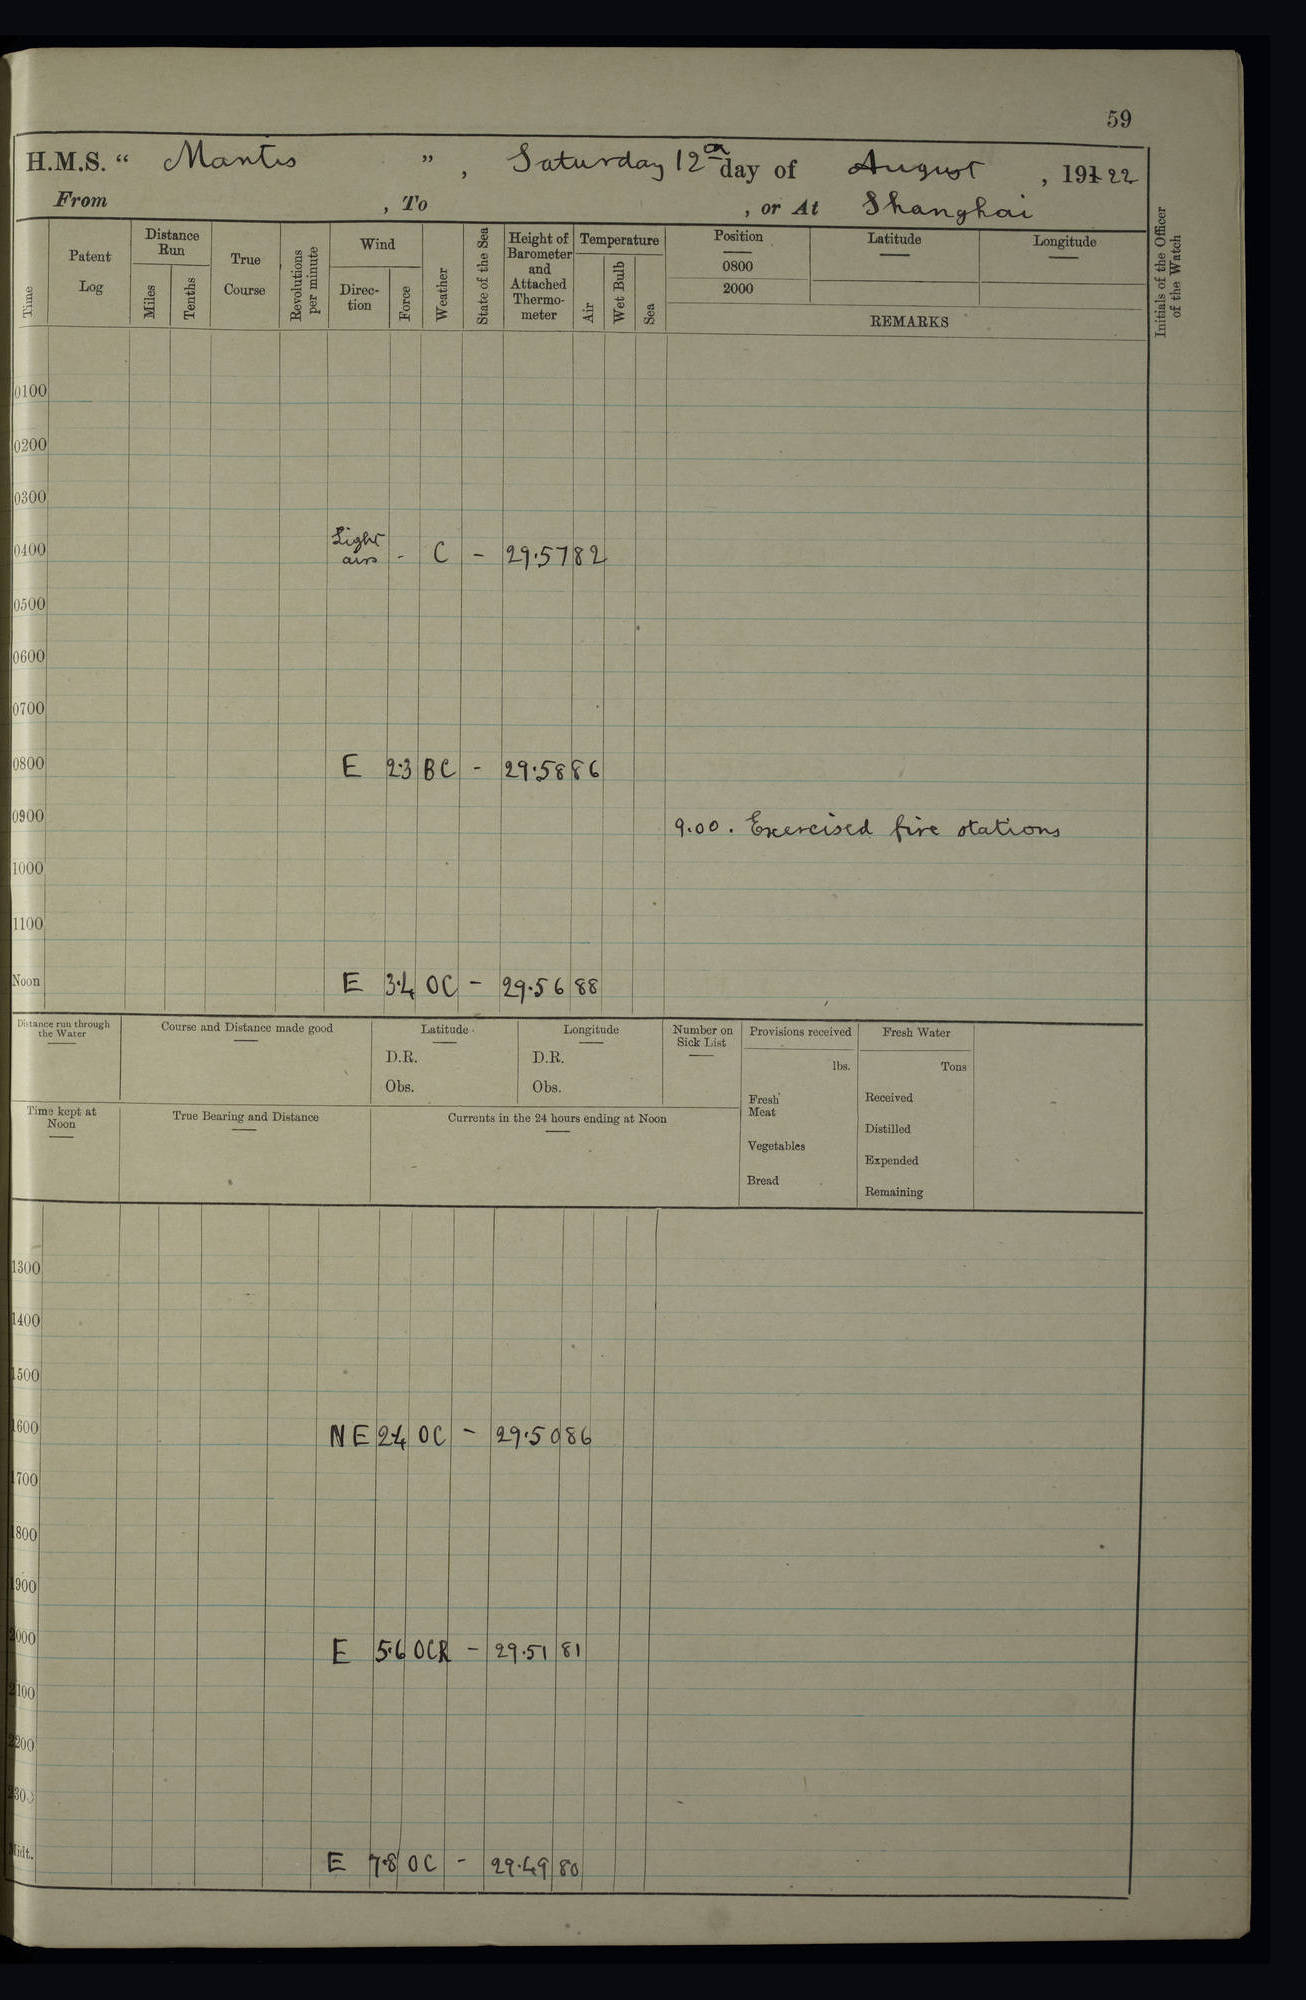 59
H.M.S. “ Mantis ”, Saturday 12th day of August, 191 22
From , To , or At Shanghai
Time
Patent Log
Distance Run
Miles
Tenths
True Course
Revolutions per minute
Wind
Direc-tion
Force
Weather
State of the Sea
Height of Barometer and Attached Thermo-meter
Temperature
Air
Wet Bulb
Sea
Position
0800
2000
Latitude
Longitude
REMARKS
Initials of the Officer of the Watch
0100
0200
0300
0400 Light airs - C - 29.57 82
0500
0600
0700
0800 E 2.3 BC - 29.58 86
0900 9.00. Exercised fire stations
1000
1100
Noon E 3.4 OC - 29.56 88
Distance run through the Water
Course and Distance made good
Latitude
D.R.
Obs.
Longitude
D.R.
Obs.
Number on Sick List
Provisions received
lbs.
Fresh Meat
Vegetables
Bread
Fresh Water
Tons
Received
Distilled
Expended
Remaining
Time kept at Noon
True Bearing and Distance
Currents in the 24 hours ending at Noon
1300
1400
1500
1600 NE 2.4 OC - 29.50 86
1700
1800
1900
2000 E 5.6 OCR - 29.51 81
2100
2200
2300
Midt. E 7.8 OC - 29.49 80